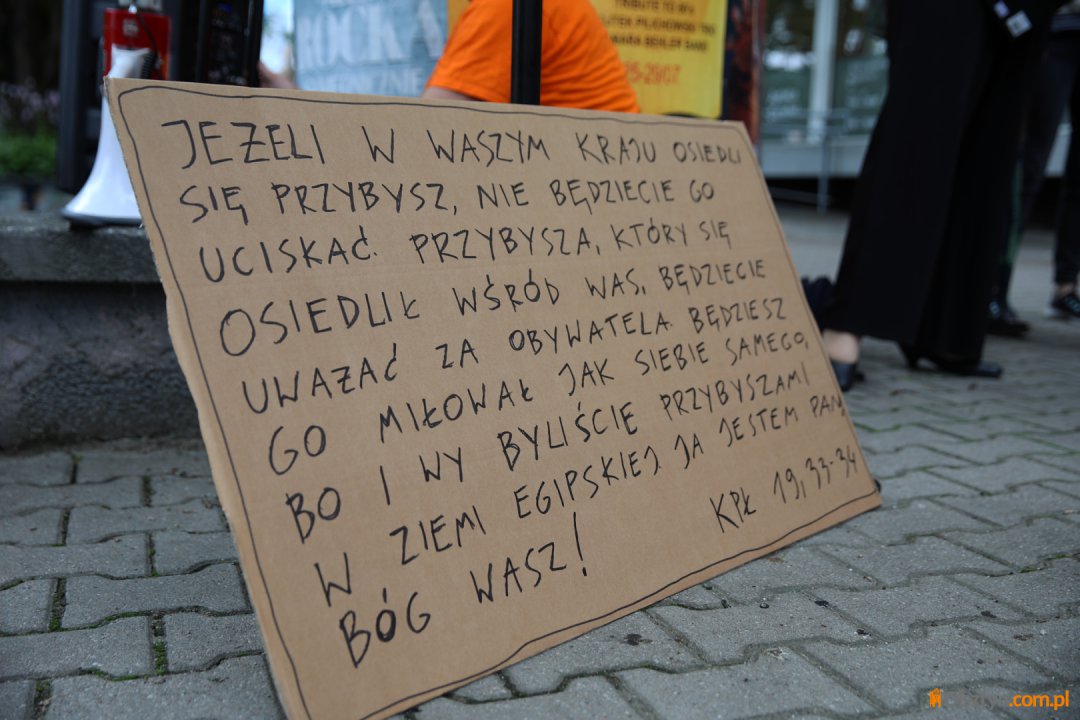 JEŻELI W WASZYM KRAJU OSIEDLI
SIĘ PRZYBYSZ, NIE BĘDZIECIE GO
UCISKAĆ. PRZYBYSZA, KTÓRY SIĘ
OSIEDLIŁ WŚRÓD WAS, BĘDZIECIE
UWAŻAĆ ZA OBYWATELA. BĘDZIESZ
GO MIŁOWAŁ JAK SIEBIE SAMEGO,
BO I WY BYLIŚCIE PRZYBYSZAMI
W ZIEMI EGIPSKIEJ. JA JESTEM PAN,
BÓG WASZ!
KPŁ 19, 33-34
TRIBUTE TO
.com.pl